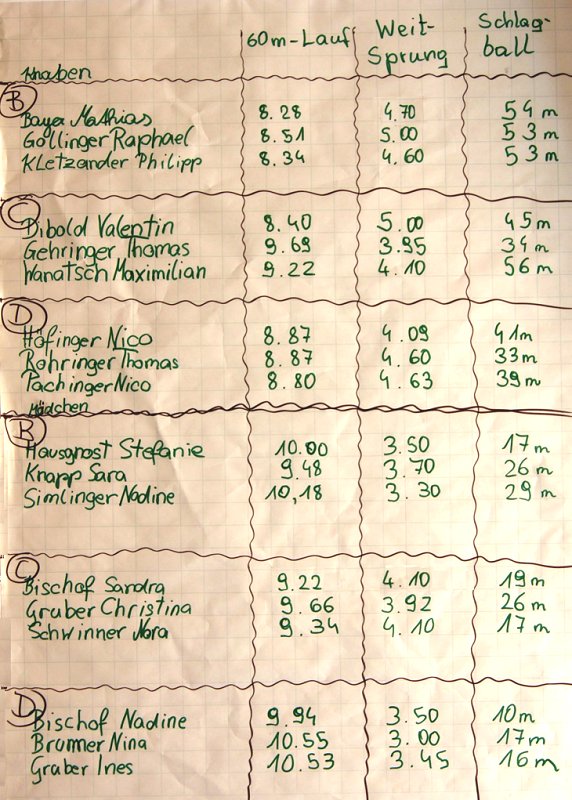 60m-Lauf Weit- Sprung Schlag- ball
Knaben
B
Bayer Mathias 8.28 4.70 54m
Gollinger Raphael 8.51 5.00 53m
Kletzander Philipp 8.34 4.60 53m
C
Dibold Valentin 8.40 5.00 45m
Gehringer Thomas 9.69 3.95 34m
Wanatsch Maximilian 9.22 4.10 56m
D
Höfinger Nico 8.87 4.09 41m
Rohringer Thomas 8.87 4.60 33m
Pachinger Nico 8.80 4.63 39m
Mädchen
B
Hausgnost Stefanie 10.00 3.50 17m
Knapp Sara 9.48 3.70 26m
Simlinger Nadine 10,18 3.30 29m
C
Bischof Sandra 9.22 4.10 19m
Gruber Christina 9.66 3.92 26m
Schwinner Nora 9.34 4.10 17m
D
Bischof Nadine 9.94 3.50 10m
Brunner Nina 10.55 3.00 17m
Graber Ines 10.53 3.45 16m